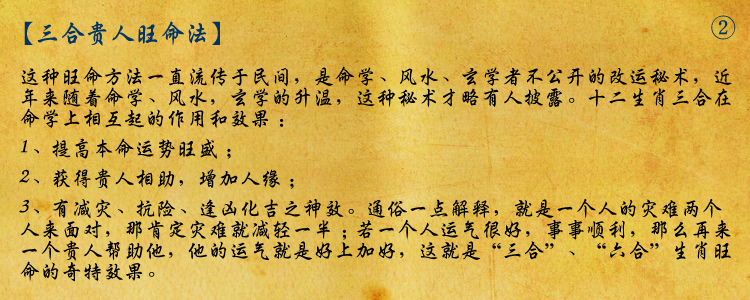 【三合贵人旺命法】 ②
这种旺命方法一直流传于民间，是命学、风水、玄学者不公开的改运秘术，近
年来随着命学、风水，玄学的升温，这种秘术才略有人披露。十二生肖三合在
命学上相互起的作用和效果：
1、提高本命运势旺盛；
2、获得贵人相助，增加人缘；
3、有减灾、抗险、逢凶化吉之神效。通俗一点解释，就是一个人的灾难两个
人来面对，那肯定灾难就减轻一半；若一个人运气很好，事事顺利，那么再来
一个贵人帮助他，他的运气就是好上加好，这就是“三合”、“六合”生肖旺
命的奇特效果。